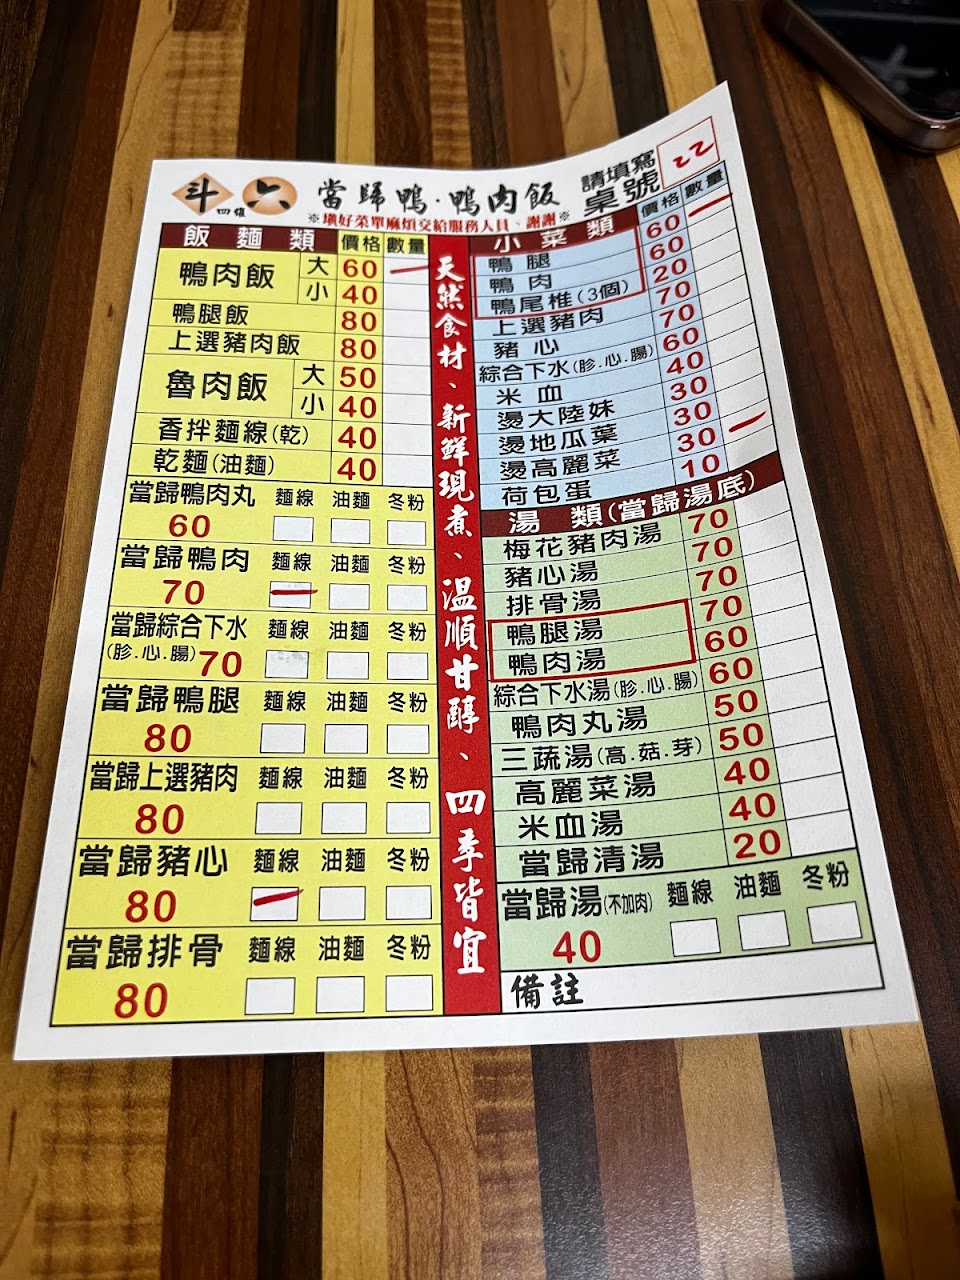 斗六 四維 當歸鴨·鴨肉飯 請填寫桌號 22
※填好菜單麻煩交給服務人員、謝謝※
飯麵類 價格 數量
鴨肉飯 大 60 一
小 40
鴨腿飯 80
上選豬肉飯 80
魯肉飯 大 50
小 40
香拌麵線(乾) 40
乾麵(油麵) 40
當歸鴨肉丸 60 麵線 油麵 冬粉
當歸鴨肉 70 麵線 一 油麵 冬粉
當歸綜合下水(胗.心.腸) 70 麵線 油麵 冬粉
當歸鴨腿 80 麵線 油麵 冬粉
當歸上選豬肉 80 麵線 油麵 冬粉
當歸豬心 80 麵線 一 油麵 冬粉
當歸排骨 80 麵線 油麵 冬粉
天然食材、新鮮現煮、溫順甘醇、四季皆宜
小菜類 價格 數量
鴨腿 60 一
鴨肉 60
鴨尾椎(3個) 20
上選豬肉 70
豬心 70
綜合下水(胗.心.腸) 60
米血 40
燙大陸妹 30
燙地瓜葉 30
燙高麗菜 30 一
荷包蛋 10
湯類(當歸湯底)
梅花豬肉湯 70
豬心湯 70
排骨湯 70
鴨腿湯 70
鴨肉湯 60
綜合下水湯(胗.心.腸) 60
鴨肉丸湯 50
三蔬湯(高.菇.芽) 50
高麗菜湯 40
米血湯 40
當歸清湯 20
當歸湯(不加肉) 40 麵線 油麵 冬粉
備註